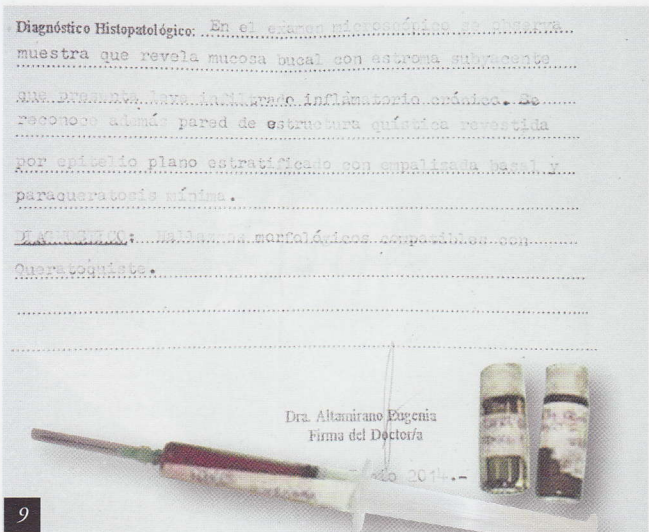 Diagnóstico Histopatológico: En el examen microscópico se observa
muestra que revela mucosa bucal con estroma subyacente
que presenta leve infiltrado inflamatorio crónico. Se
reconoce además pared de estructura quística revestida
por epitelio plano estratificado con empalizada basal y
paraqueratosis mínima.
DIAGNOSTICO: Hallazgos morfológicos compatibles con
Queratoquiste.
Dra. Altamirano Eugenia
Firma del Doctor/a
2014.-
9